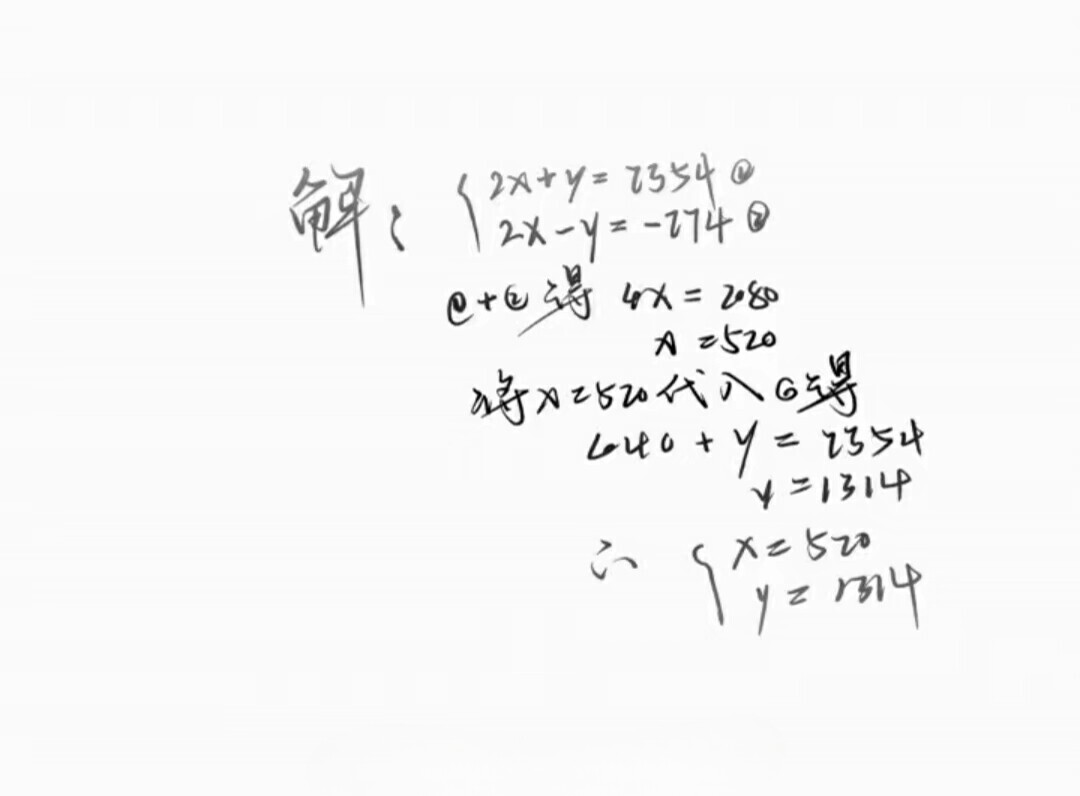 解：{2x+y=2354 ①
2x-y=-274 ②
①+②得 4x=2080
x=520
将x=520代入①得
1040+y=2354
y=1314
∴ {x=520
y=1314